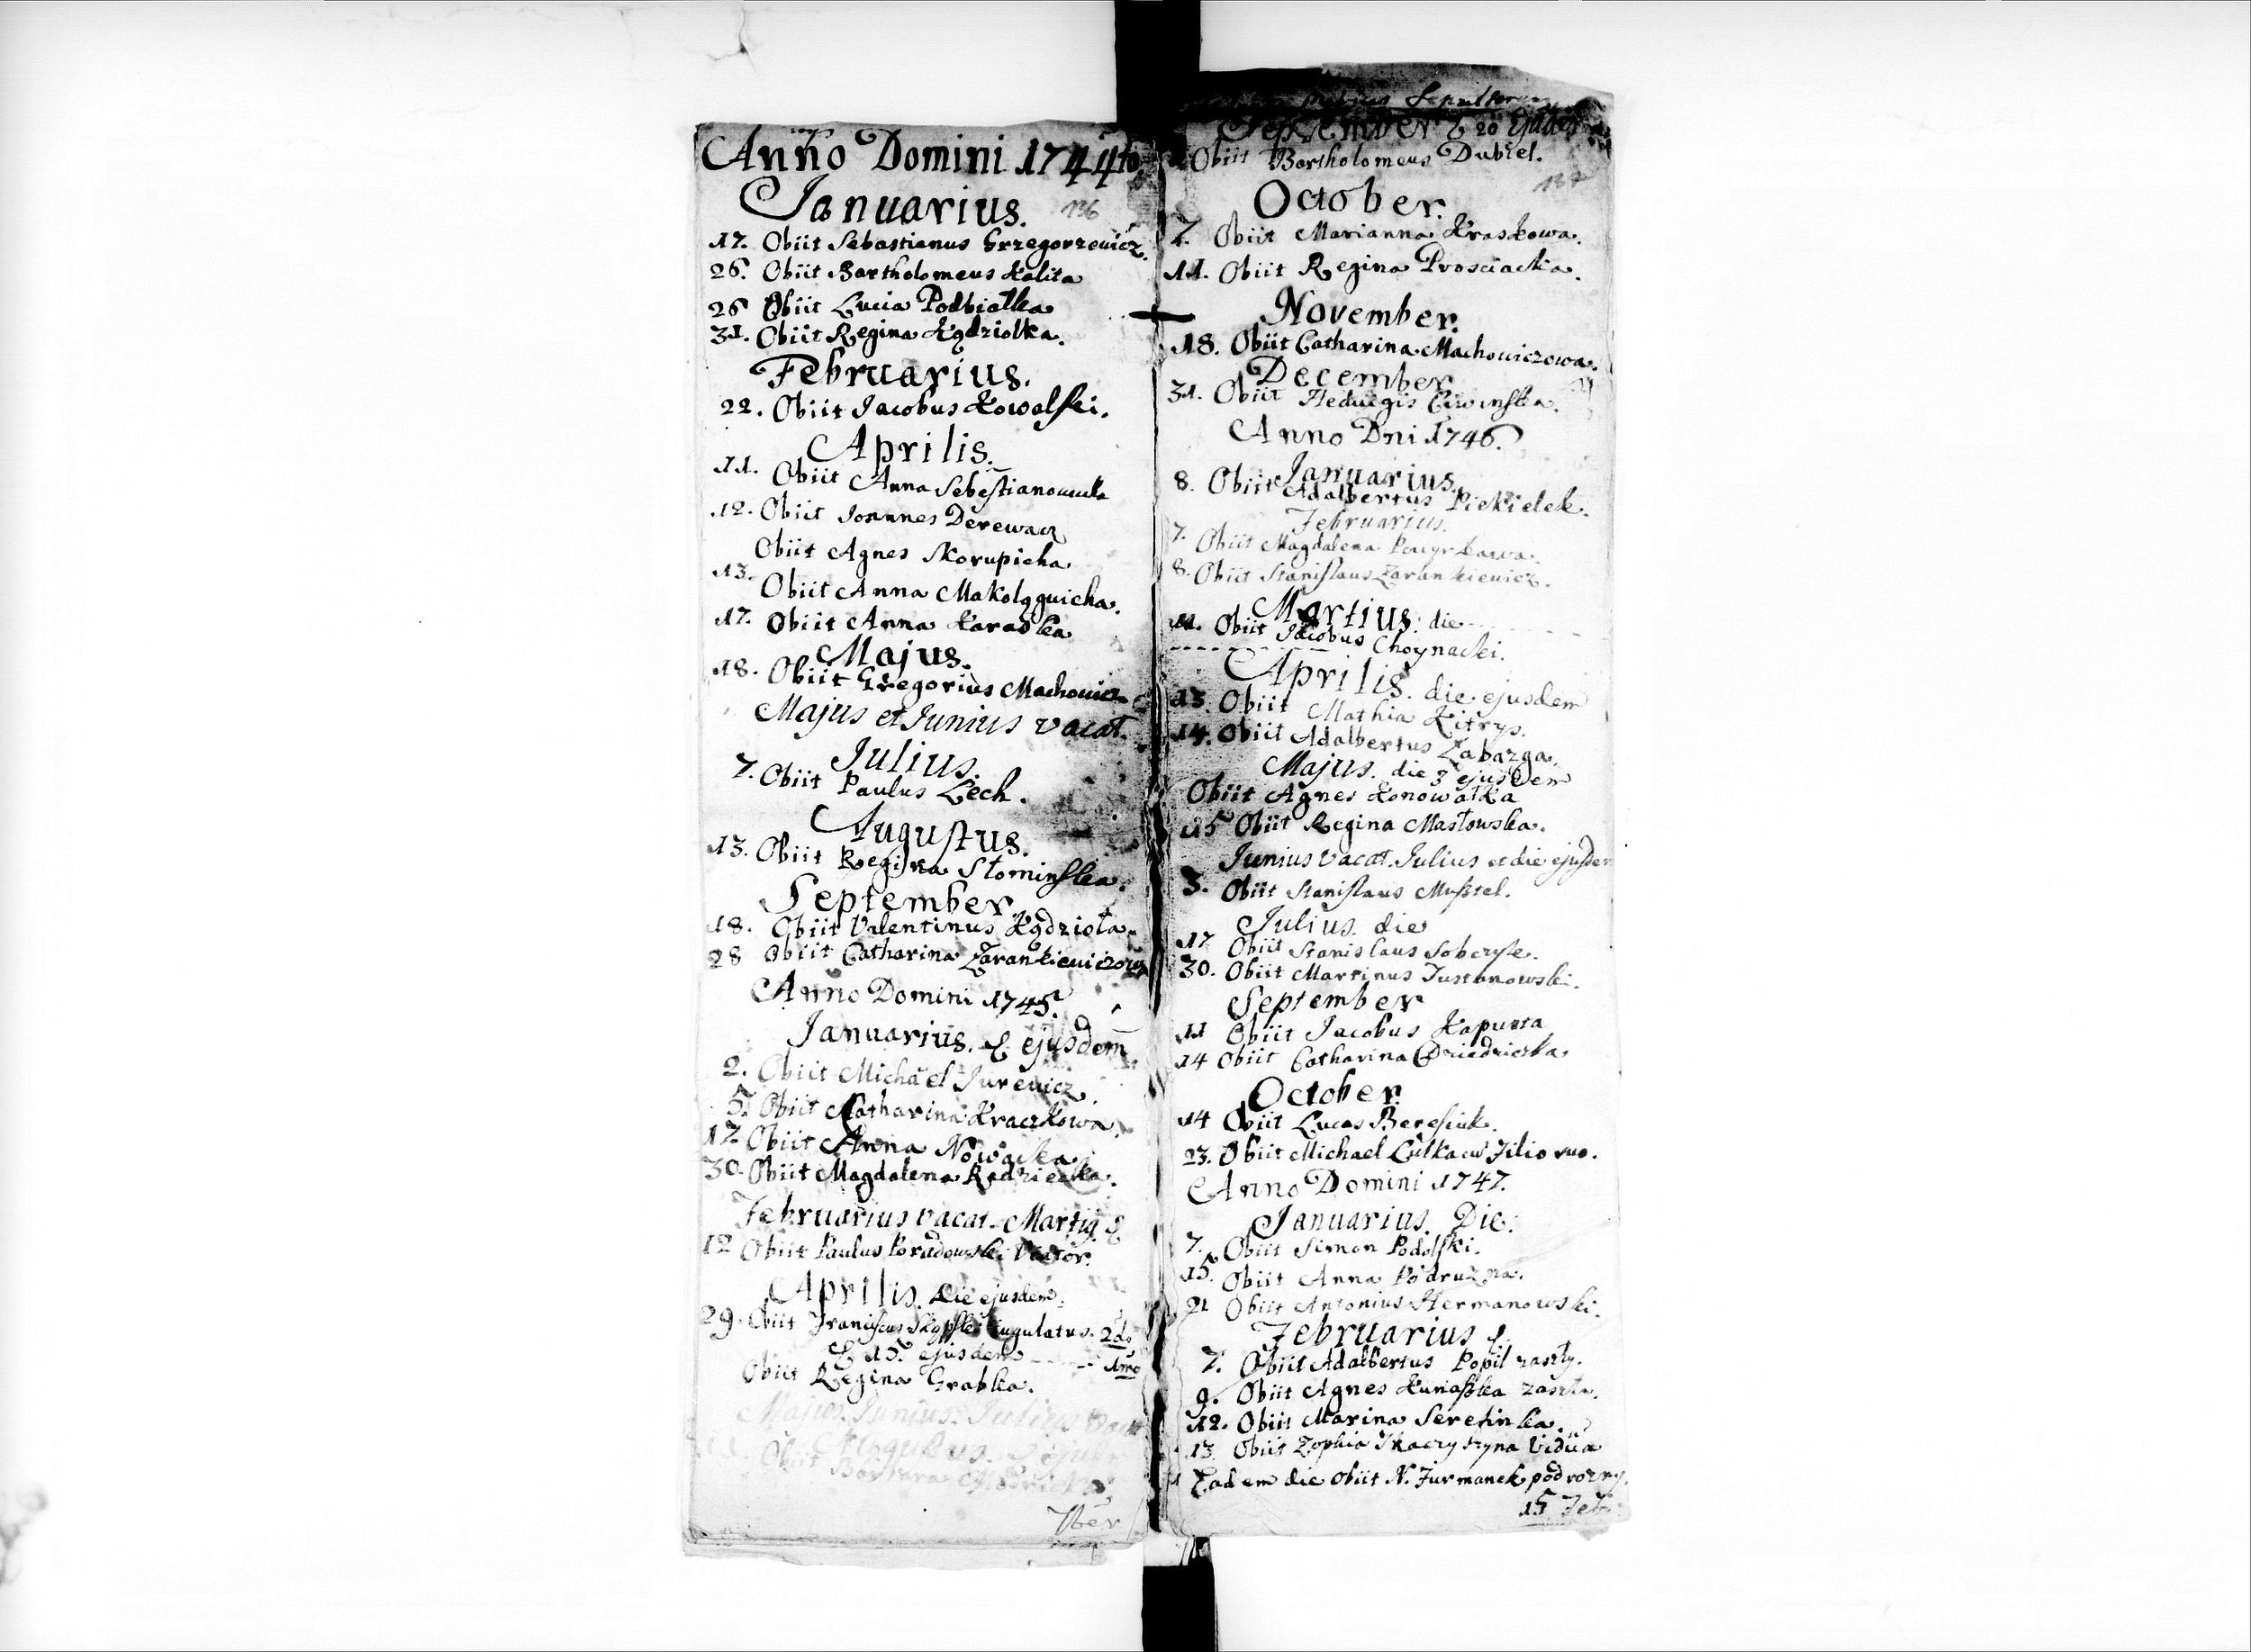 Anno Domini 1744to.
Januarius. 136
17. Obiit Sebastianus Grzegorzewicz.
26. Obiit Bartholomeus Kalita
26 Obiit Lucia Podbialka
31. Obiit Regina Kądziolka.
Februarius.
22. Obiit Jacobus Kowalski.
Aprilis.
11. Obiit Anna
12. Obiit Joannes Derewacz
Obiit Agnes Skorupicha
13. Obiit Anna Makolągwicha.
17. Obiit Anna
Majus.
18. Obiit Gregorius Machowicz
Majus et Junius vacat.
Julius.
7. Obiit Paulus Lech.
Augustus.
13. Obiit Regina Słominska.
September.
18. Obiit Valentinus Kądzioła.
28 Obiit Catharina
Anno Domini 1745.
Januarius. & ejusdem
2. Obiit Michael Jurewicz.
5. Obiit Catharina Kraczkowa.
17. Obiit Anna Nowacka.
30. Obiit Magdalena
Februarius vacat. Martij &
12 Obiit Paulus
Aprilis. die ejusdem.
29. Obiit Franciscus jugulatus. 2do
& 15. ejusdem 1mo
Obiit Regina Grabka.
Majus. Junius. Julius
Augustus.
Obiit Barbara
7ber
September & 20 Ejusdem
Obiit Bartholomeus Dubiel.
137
October.
7. Obiit Marianna Kraskowa.
11. Obiit Regina Prosciacka.
November.
18. Obiit Catharina Machowiczowa.
December
31. Obiit Heduigis
Anno Dni 1746.
Januarius.
8. Obiit Adalbertus Piekielek.
Februarius.
7. Obiit Magdalena
8. Obiit Stanislaus Zarankiewicz.
Martius. die
11. Obiit Jacobus Choynacki.
Aprilis. die ejusdem
13. Obiit Mathia Kitrys.
14. Obiit Adalbertus Zabazga.
Majus. die 3 ejusdem
Obiit Agnes Konowałka
15 Obiit Regina Masłowska.
Junius vacat. Julius et die ejusdem
3. Obiit Stanislaus Musztel.
Julius. die
17 Obiit Stanislaus Sobczyk.
30. Obiit Martinus Justanowski.
September
11 Obiit Jacobus Kapusta
14 Obiit Catharina Dziedziczka.
October.
14 Obiit Lucas Beresiuk.
23. Obiit Michael Lutka cu Filio suo.
Anno Domini 1747.
Januarius. Die.
7. Obiit Simon Podolski.
15. Obiit Anna Podruzna.
21 Obiit Antonius Hermanowski.
Februarius &
7. Obiit Adalbertus Popil zaszły.
9. Obiit Agnes zaszła.
12. Obiit Marina Seretinka.
13 Obiit Zophia Tkaczyszyna Vidua
Eadem die Obiit N. Furmanek podrozny.
15 Feb: